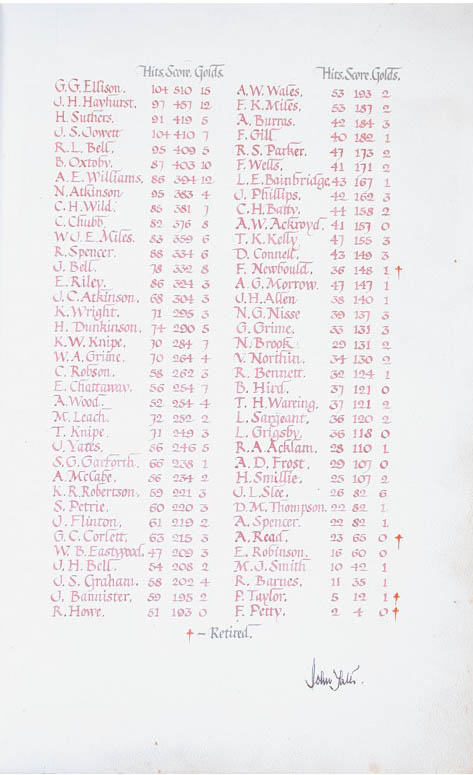 Hits. Score. Golds.
G.G. Ellison. 104 510 15
J. H. Hayhurst. 97 457 12
H. Suthers. 91 419 5
J. S. Jowett 104 410 7
R. L. Bell. 95 409 5
B. Oxtoby. 87 403 10
A. E. Williams. 86 394 12
N. Atkinson 95 383 4
C. H. Wild. 85 381 7
C. Chubb. 82 376 8
W. J. E. Miles. 83 359 6
R. Spencer. 88 334 6
J. Bell. 78 332 8
E. Riley. 86 324 3
J. C. Atkinson. 68 304 3
K. Wright. 71 295 3
H. Dunkinson. 74 290 5
K. W. Knipe. 70 284 7
W. A. Grime. 70 264 4
C. Robson. 58 262 3
E. Chattaway. 56 254 7
A. Wood. 52 254 4
M. Leach. 72 252 2
T. Knipe. 71 249 3
J. Yates. 56 246 5
S. G. Garforth. 66 238 1
A. McCabe. 56 234 2
K. R. Robertson. 59 221 3
S. Petrie. 60 220 3
J. Flinton. 61 219 2
G. C. Corlett. 63 215 3
W. B. Eastwood. 47 209 3
J. H. Bell. 54 208 2
J. S. Graham. 58 202 4
J. Bannister. 59 195 2
R. Howe. 51 193 0
Hits. Score. Golds.
A. W. Wales. 53 193 2
F. K. Miles. 53 187 2
A. Burras. 42 184 3
F. Gill 40 182 1
R. S. Parker. 47 173 2
F. Wells. 41 171 2
L. E. Bainbridge. 43 167 1
J. Phillips. 42 162 3
C. H. Batty. 44 158 2
A. W. Ackroyd. 41 157 0
T. K. Kelly. 47 155 3
D. Connell. 43 149 3
F. Newbould. 36 148 1 †
A. G. Morrow. 47 147 1
J. H. Allen 38 140 1
N. G. Nisse 39 137 3
G. Grime. 33 131 3
N. Brook. 29 131 2
V. Northin. 34 130 2
R. Bennett. 32 124 1
B. Hird. 37 121 0
T. H. Warring. 37 121 2
L. Sargeant. 36 120 2
L. Grigsby. 36 118 0
R. A. Acklam. 28 110 1
A. D. Frost. 29 107 0
H. Smillie. 25 107 2
J. L. Slee. 26 82 6
D. M. Thompson. 22 82 1
A. Spencer. 22 82 1
A. Read. 23 65 0 †
E. Robinson. 16 60 0
M. J. Smith 10 42 1
R. Barnes. 11 35 1
P. Taylor. 5 12 1 †
F. Petty. 2 4 0 †
† ~ Retired.
John Yates.